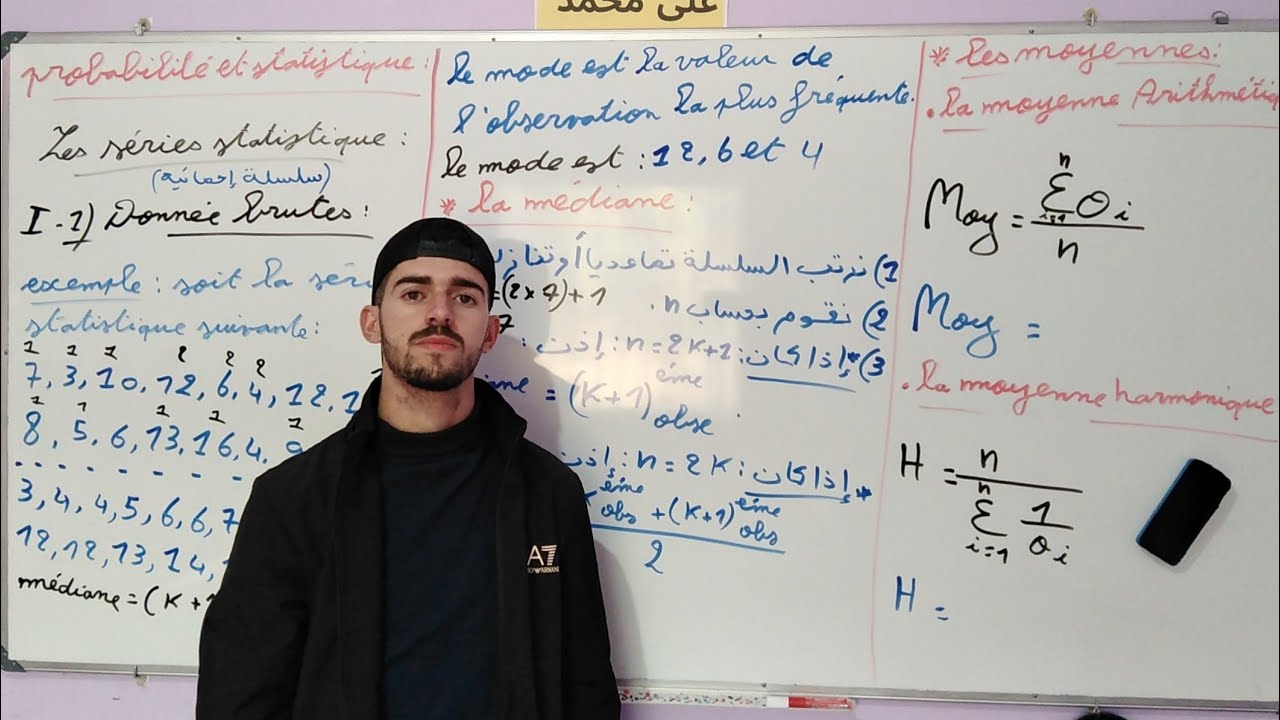 على محمد
probabilité et statistique :
Les séries statistique :
(سلسلة إحصائية)
I-1) Donnée brutes :
exemple : soit la séri
statistique suivante :
1 1 1 2 2 2
7, 3, 10, 12, 6, 4, 12, 1
1 1 1 1 1
8, 5, 6, 13, 16, 4, 9
3, 4, 4, 5, 6, 6, 7
12, 12, 13, 14,
médiane = (K +
le mode est la valeur de
l'observation la plus fréquente.
le mode est : 12, 6 et 4
* la médiane :
1) نرتب السلسلة تصاعدياً أو تناز
= (2 x 7) + 1
2) نقوم بحساب n.
7
3) * إذا كان : n = 2K+1 : إذن :
= (K+1) éme obse
* إذا كان : n = 2K : إذن
éme obs + (K+1) éme obs
2
* les moyennes :
. la moyenne Arithmétiq
Moy = n Σ i=1 Θi
n
Moy =
. la moyenne harmonique
H = n
n Σ i=1 1 Θi
H =
A7